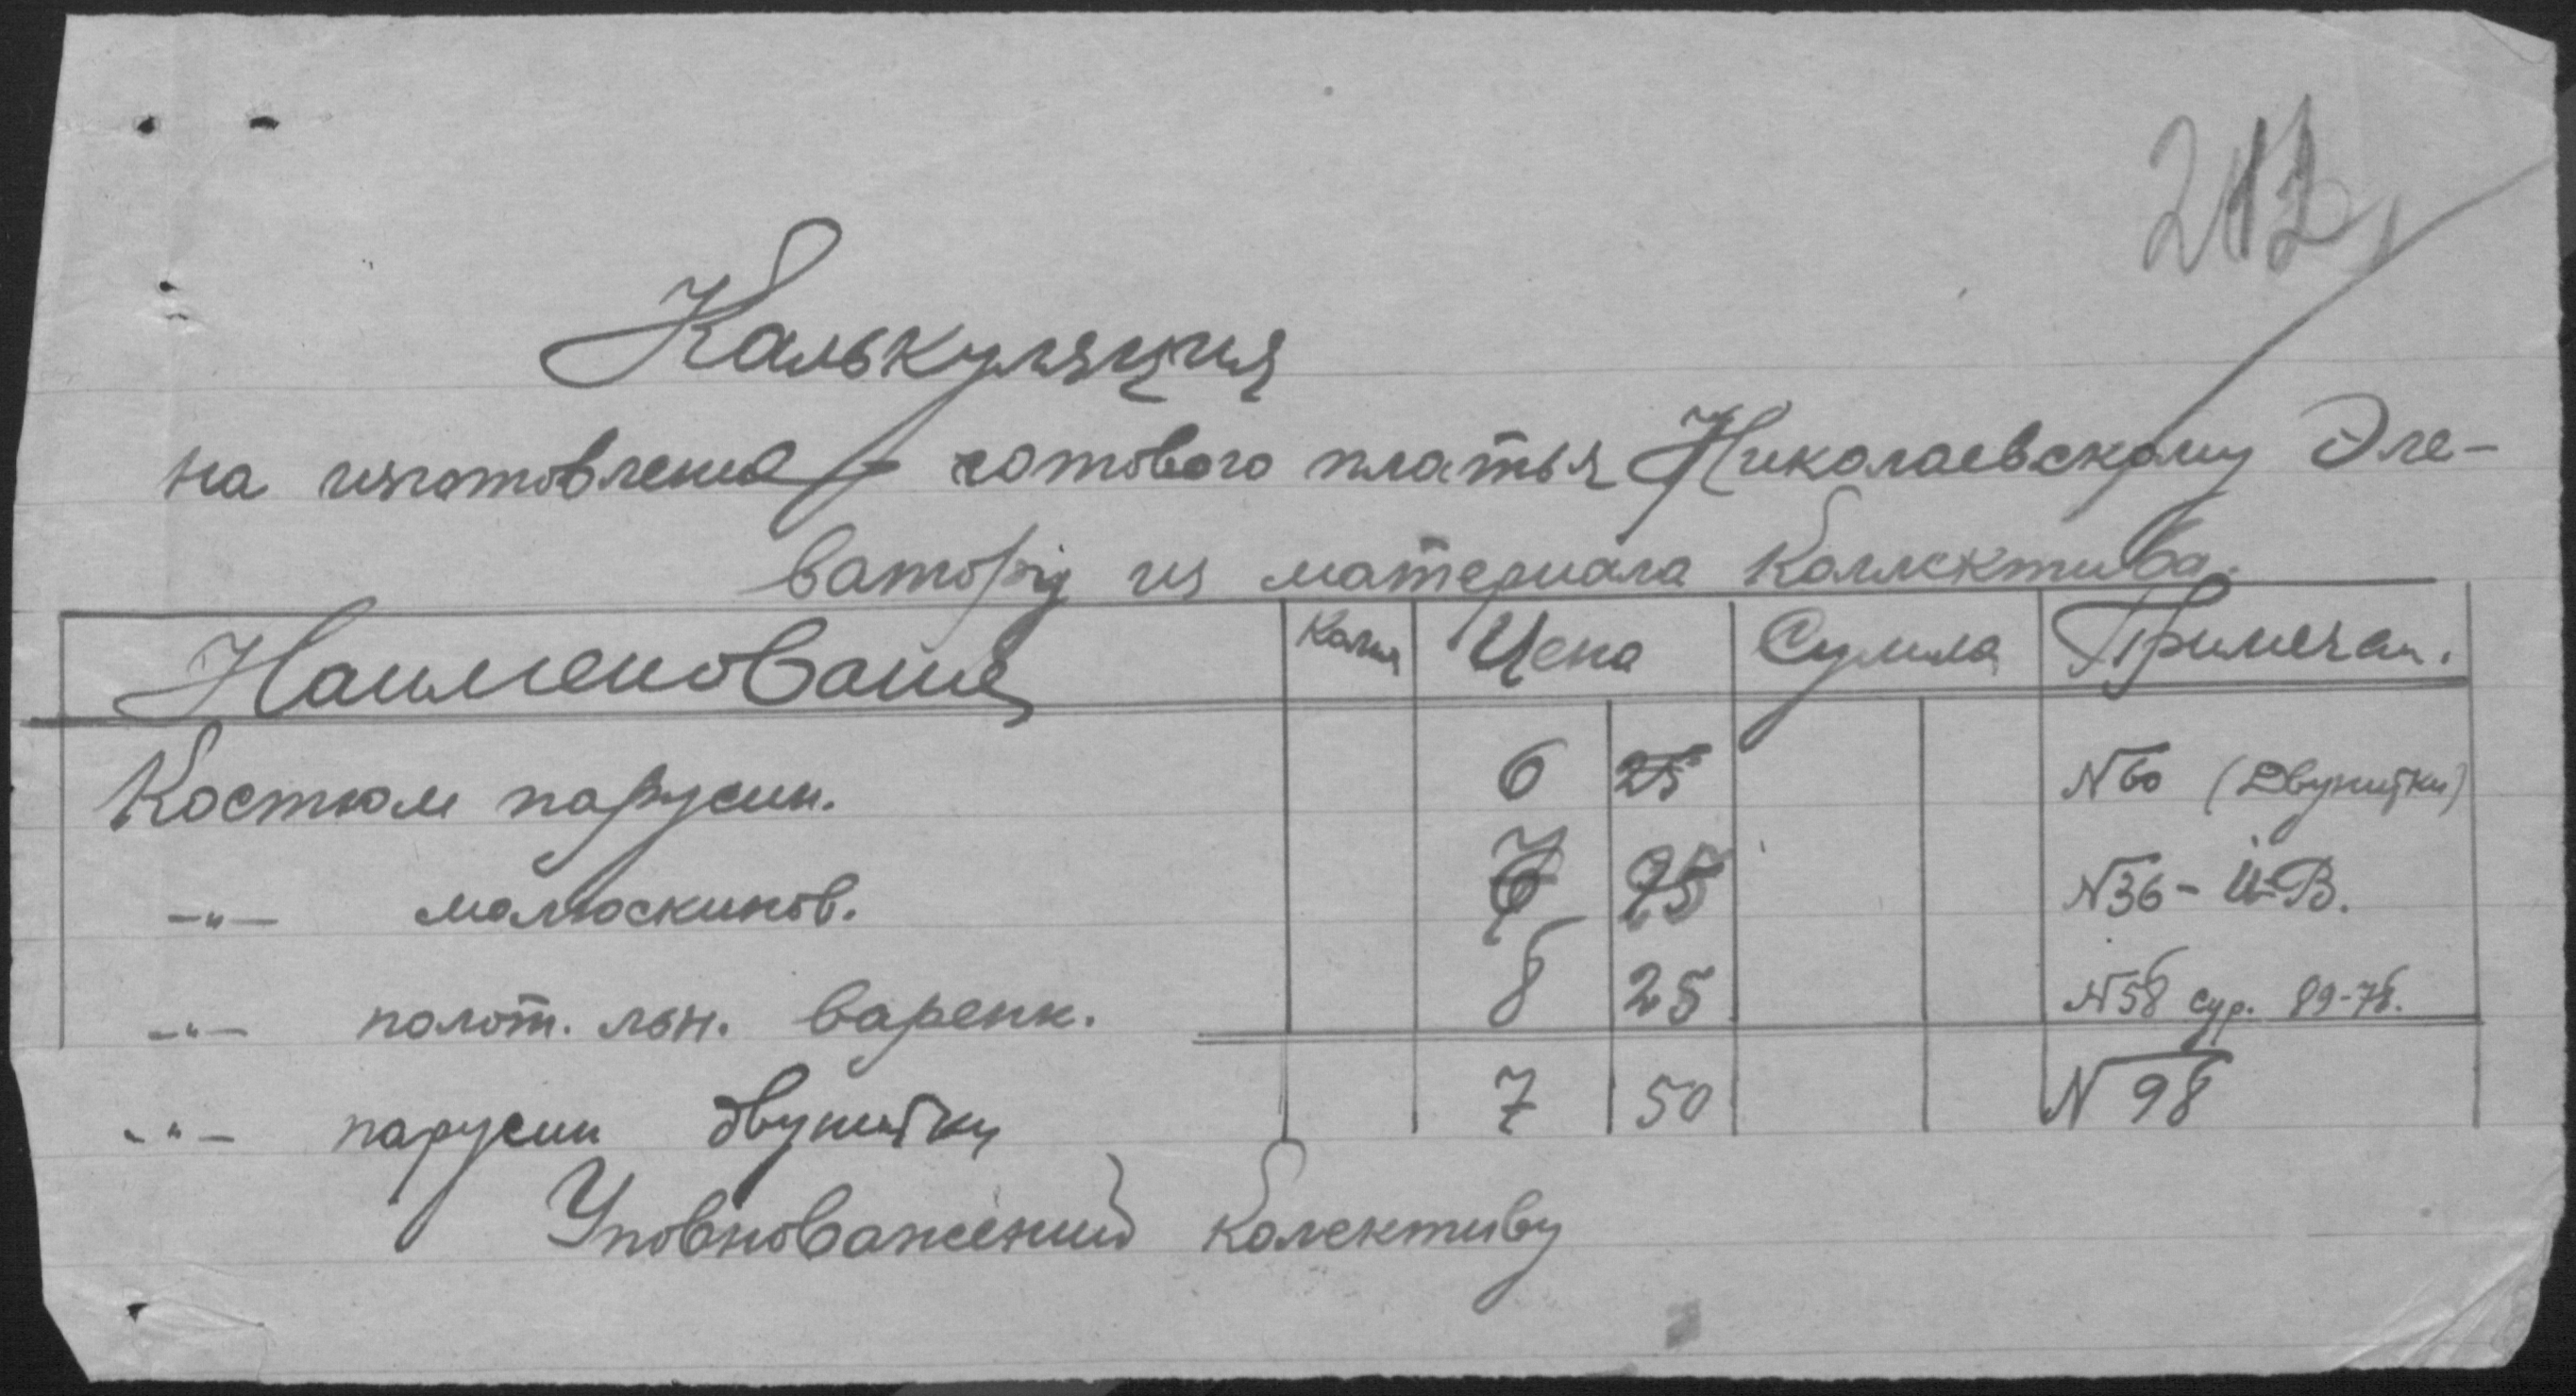 212
Калькуляция
на изготовление готового платья Николаевскому Эле-
ватору из материала Коллектива.
Наименование Колич Цена Сумма Примечан.
Костюм парусин. 6 25 N 60 (Двунитки)
-"- молюскинов. 7 25 N 36 -
-"- полот. льн. варенк. 8 25 N 58 сур. 89-76.
-"- парусин двунитки 7 50 N 98
Уповноважений колективу